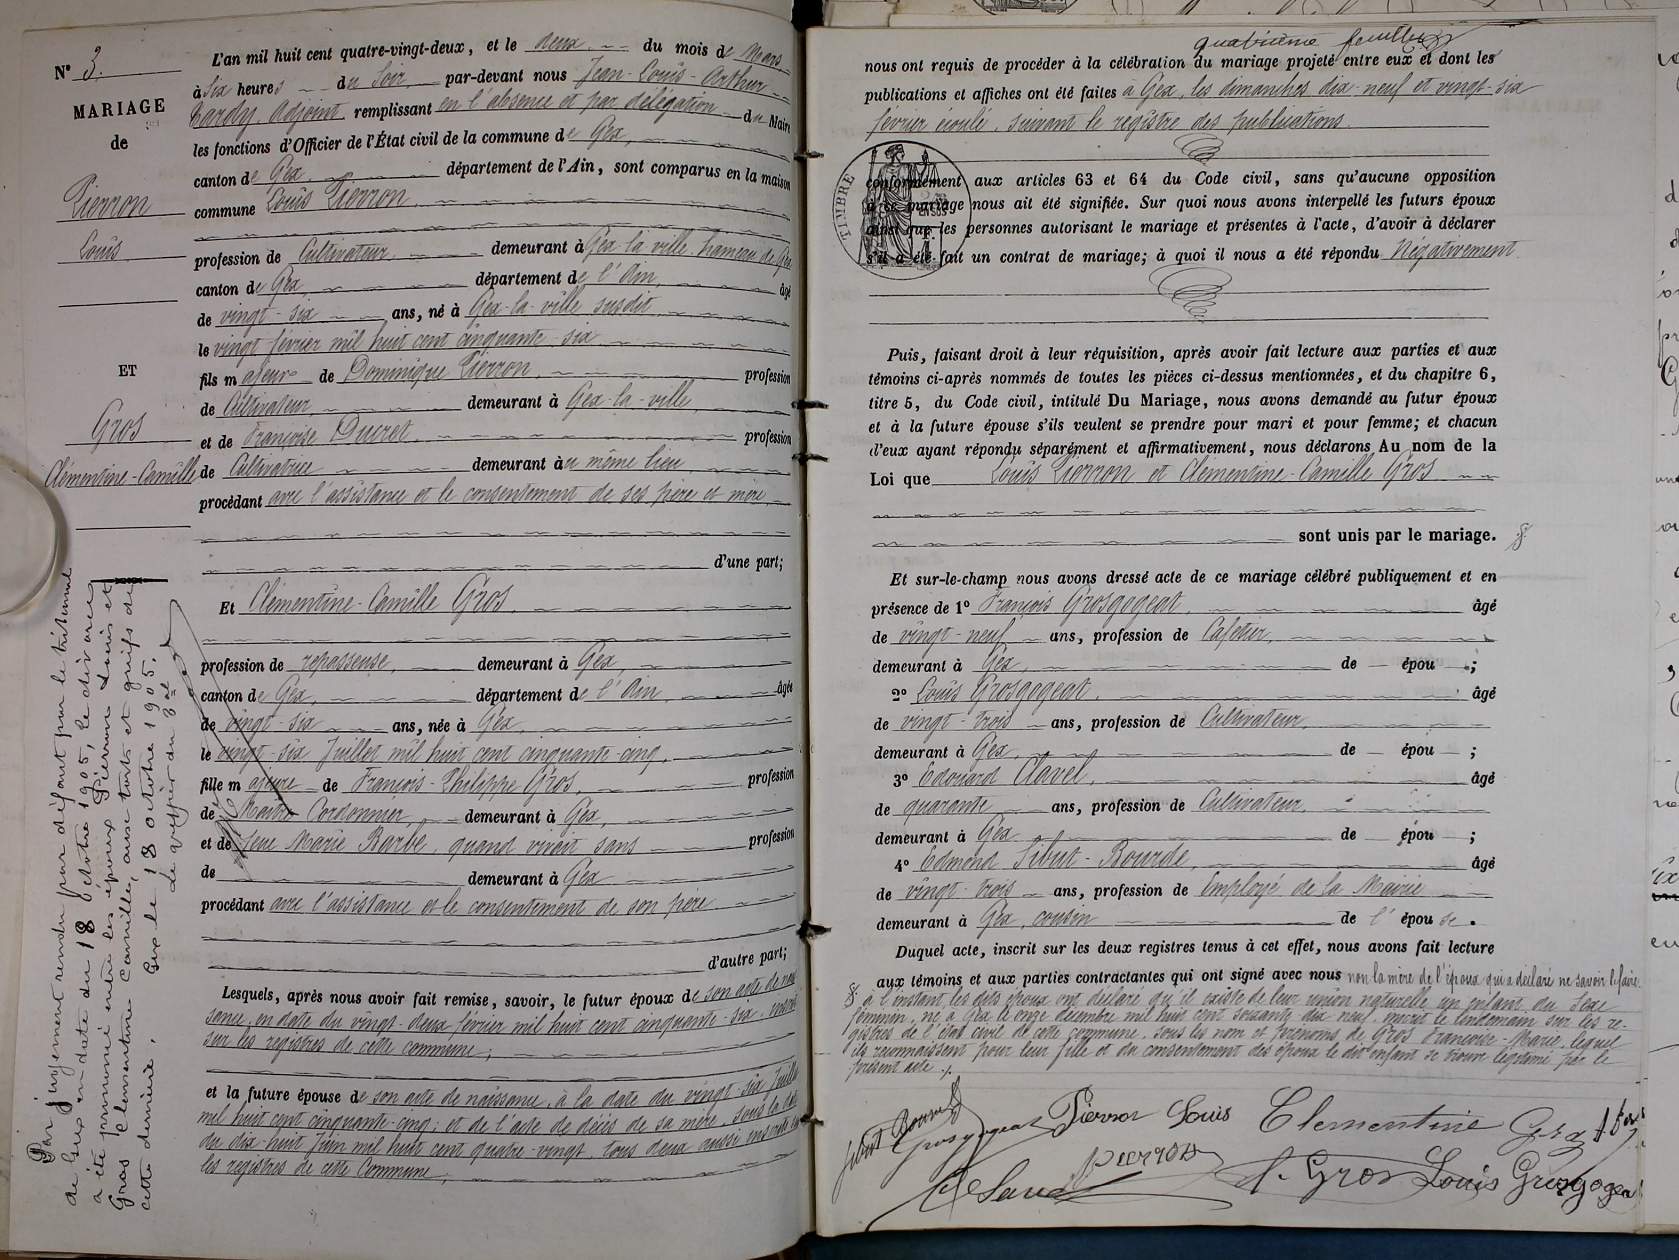 N° 3.
MARIAGE
de
Pierron
Louis
ET
Gros
Clémentine-Camille
Par jugement rendu par défaut par le tribunal
de Gex en date du 18 octobre 1905, le divorce
a été prononcé entre les époux Pierron Louis et
Gros Clémentine Camille, aux torts et griefs de
cette dernière. Gex le 18 octobre 1905.
Le Greffier du Tal
L'an mil huit cent quatre-vingt-deux, et le deux du mois de Mars
à Six heures du Soir, par-devant nous Jean-Louis-Arthur
Tardy, Adjoint, remplissant en l'absence et par délégation du Maire
les fonctions d'Officier de l'État civil de la commune de Gex,
canton de Gex, département de l'Ain, sont comparus en la maison
commune Louis Pierron
profession de Cultivateur, demeurant à Gex-la-ville, hameau de Gex
canton de Gex, département de l'Ain, âgé
de vingt-six ans, né à Gex-la-ville susdit
le vingt février mil huit cent cinquante-six
fils majeur de Dominique Pierron, profession
de Cultivateur, demeurant à Gex-la-ville,
et de Françoise Ducret, profession
de Cultivatrice demeurant au même lieu,
procédant avec l'assistance et le consentement de ses père et mère,
d'une part;
Et Clémentine-Camille Gros,
profession de repasseuse, demeurant à Gex,
canton de Gex, département de l'Ain, âgée
de vingt-six ans, née à Gex,
le vingt-six Juillet mil huit cent cinquante-cinq,
fille majeure de François-Philippe Gros, profession
de Maître Cordonnier, demeurant à Gex,
et de feue Marie Barbe, quand vivait sans profession
de demeurant à Gex
procédant avec l'assistance et le consentement de son père
d'autre part;
Lesquels, après nous avoir fait remise, savoir, le futur époux de son acte de nais
sance, en date du vingt-deux février mil huit cent cinquante-six, inscrit
sur les registres de cette commune;
et la future épouse de son acte de naissance, à la date du vingt-six Juillet
mil huit cent cinquante-cinq; et de l'acte de décès de sa mère, sous la date
du dix-huit Juin mil huit cent quatre-vingt, tous deux aussi inscrits sur
les registres de cette Commune;
quatrième feuillet
nous ont requis de procéder à la célébration du mariage projeté entre eux et dont les
publications et affiches ont été faites à Gex, les dimanches dix-neuf et vingt-six
février écoulé, suivant le registre des publications.
TIMBRE
conformément aux articles 63 et 64 du Code civil, sans qu'aucune opposition
à ce mariage nous ait été signifiée. Sur quoi nous avons interpellé les futurs époux
ainsi que les personnes autorisant le mariage et présentes à l'acte, d'avoir à déclarer
s'il a été fait un contrat de mariage; à quoi il nous a été répondu Négativement
Puis, faisant droit à leur réquisition, après avoir fait lecture aux parties et aux
témoins ci-après nommés de toutes les pièces ci-dessus mentionnées, et du chapitre 6,
titre 5, du Code civil, intitulé Du Mariage, nous avons demandé au futur époux
et à la future épouse s'ils veulent se prendre pour mari et pour femme; et chacun
d'eux ayant répondu séparément et affirmativement, nous déclarons Au nom de la
Loi que Louis Pierron et Clémentine-Camille Gros
sont unis par le mariage.
Et sur-le-champ nous avons dressé acte de ce mariage célébré publiquement et en
présence de 1° François Grosgogeat, âgé
de vingt-neuf ans, profession de Cafetier,
demeurant à Gex, de épou ;
2° Louis Grosgogeat, âgé
de vingt-trois ans, profession de Cultivateur,
demeurant à Gex, de épou ;
3° Edouard Clavel, âgé
de quarante ans, profession de Cultivateur,
demeurant à Gex de épou ;
4° Edmond Sibut-Bourde, âgé
de vingt-trois ans, profession de Employé de la Mairie
demeurant à Gex, cousin de l'épouse.
Duquel acte, inscrit sur les deux registres tenus à cet effet, nous avons fait lecture
aux témoins et aux parties contractantes qui ont signé avec nous non la mère de l'époux qui a déclaré ne savoir le faire.
à l'instant les dits époux ont déclaré qu'il existe de leur union naturelle un enfant du sexe
féminin, né à Gex le onze décembre mil huit cent soixante dix neuf, inscrit le lendemain sur les re-
gistres de l'état civil de cette commune, sous les nom et prénoms de Gros Françoise-Marie, lequel
ils reconnaissent pour leur fille et du consentement des époux le dit enfant se trouve légitimé par le
présent acte.
Sibut Bourde Grosgogeat Pierron Louis Clementine Gros
Pierron f. Gros Louis Grosgogeat